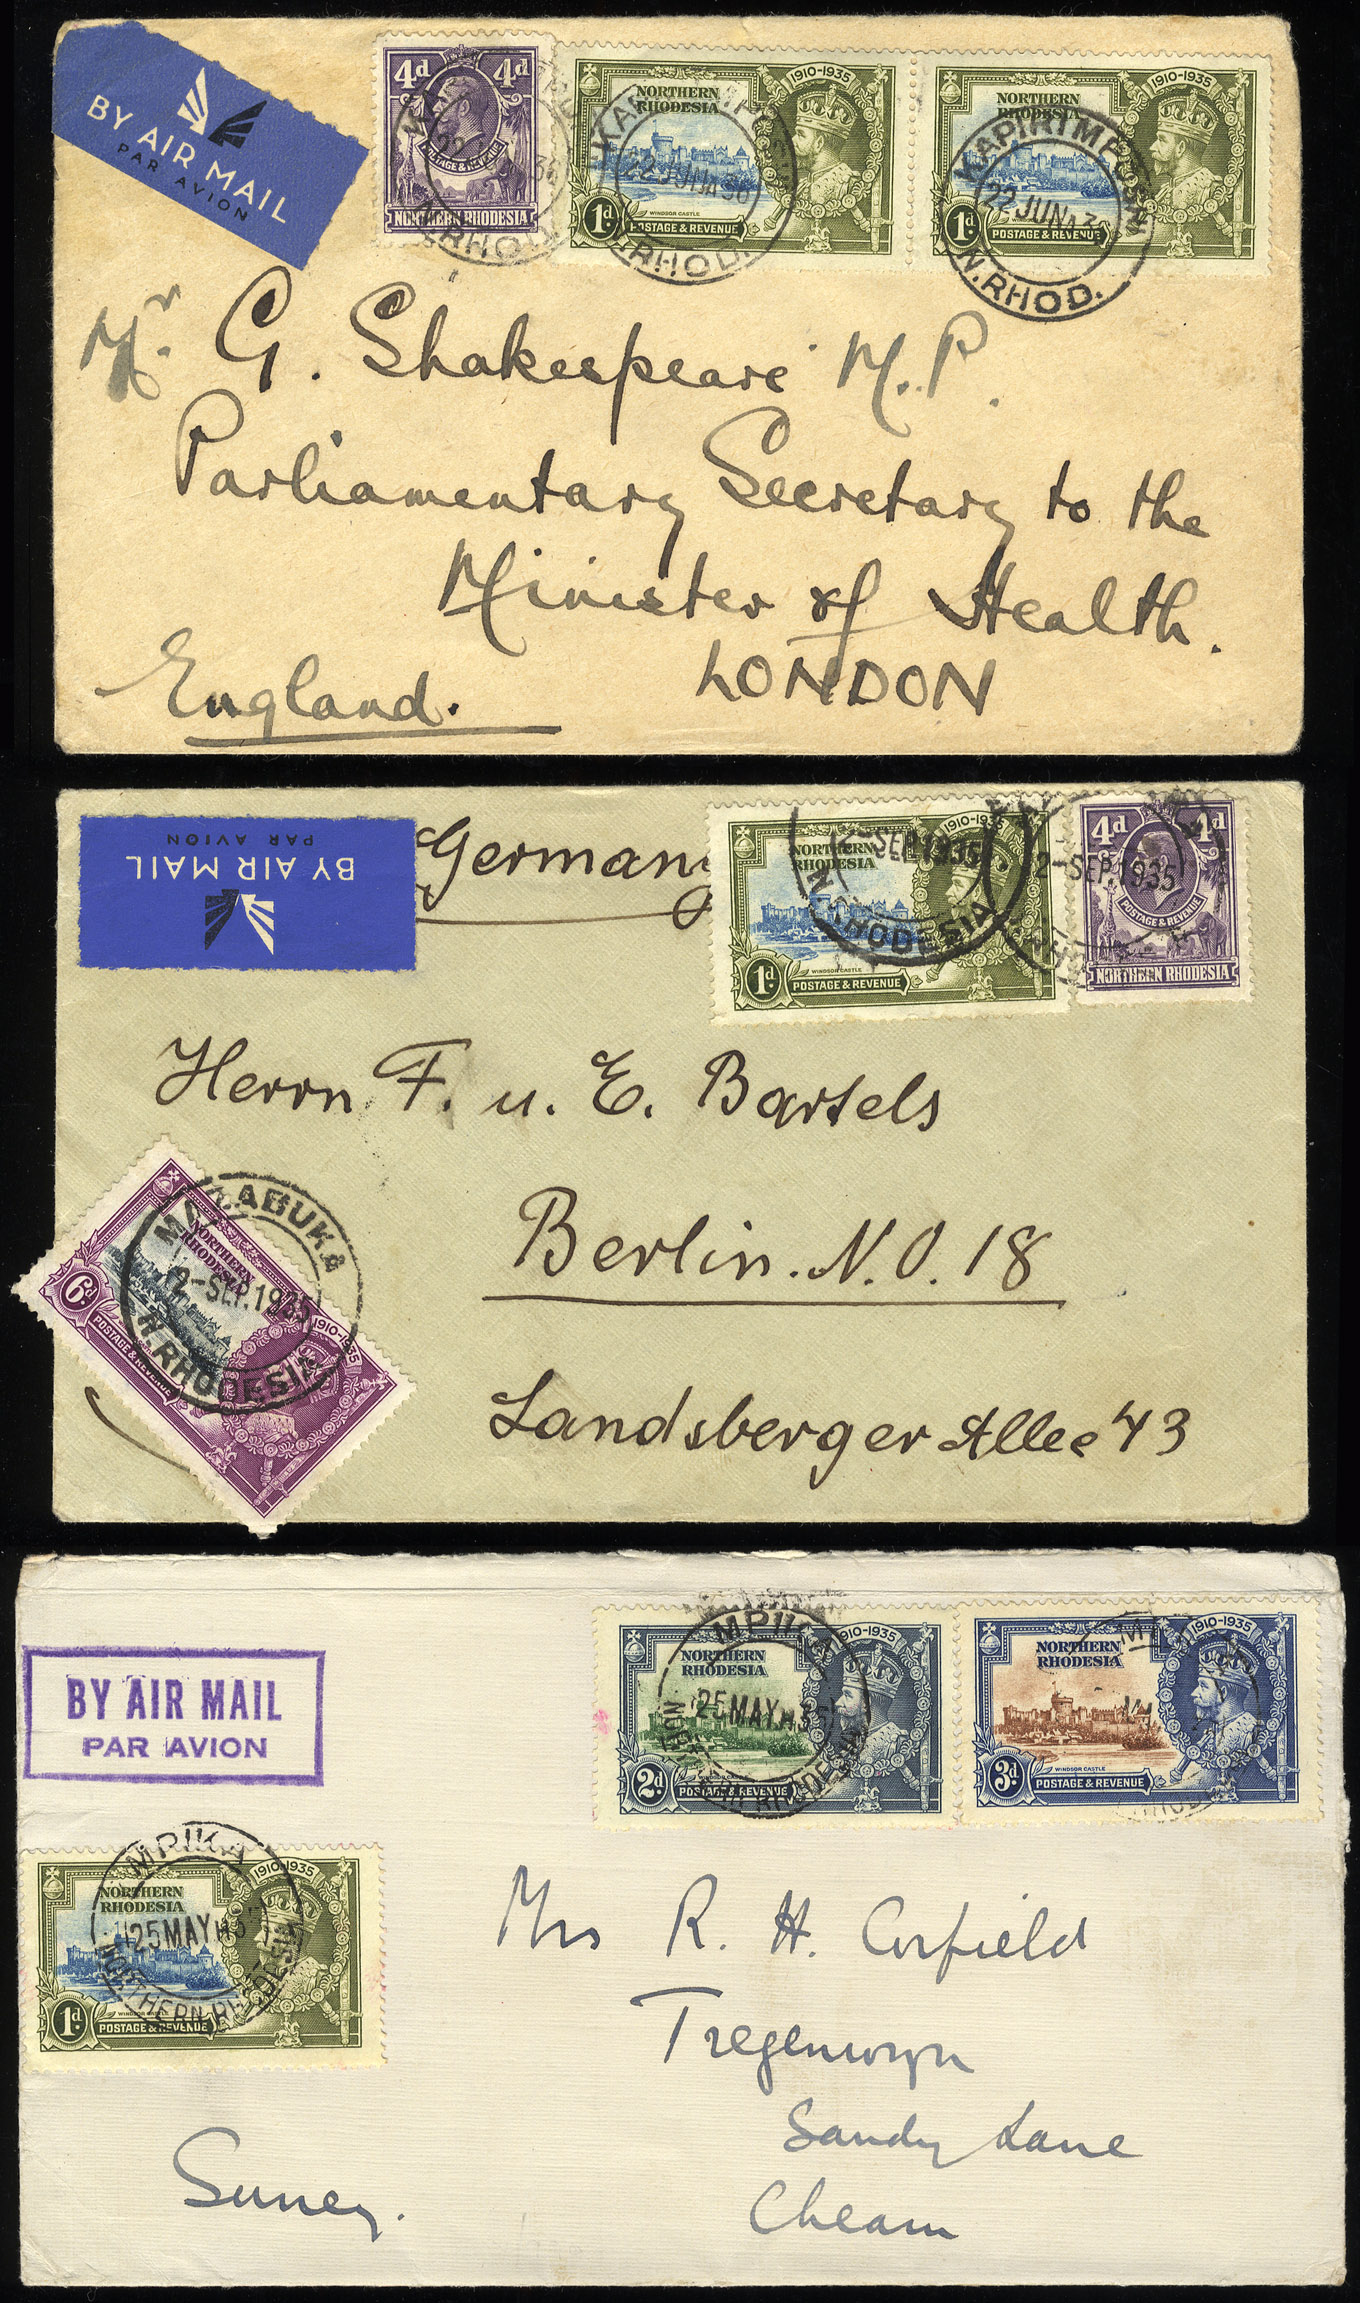 BY AIR MAIL
PAR AVION
4d 4d
POSTAGE & REVENUE
NORTHERN RHODESIA
22 36
N.RHOD.
1910-1935
NORTHERN
RHODESIA
WINDSOR CASTLE
1d POSTAGE & REVENUE
22 JUN 36
N.RHOD.
1910-1935
NORTHERN
RHODESIA
1d POSTAGE & REVENUE
KAPIRI MPOSHI
22 JUN 36
N.RHOD.
Mr. G. Shakespeare M.P.
Parliamentary Secretary to the
Minister of Health.
LONDON
England.
BY AIR MAIL
PAR AVION
Germany
1910-1935
NORTHERN
RHODESIA
WINDSOR CASTLE
1d POSTAGE & REVENUE
2-SEP.1935
N.RHODESIA
4d 4d
POSTAGE & REVENUE
NORTHERN RHODESIA
2-SEP.1935
Herrn F. u. E. Bartels
Berlin. N.O. 18
Landsberger Allee 43
NORTHERN
RHODESIA
1910-1935
6d POSTAGE & REVENUE
MAZABUKA
2-SEP.1935
N.RHODESIA
BY AIR MAIL
PAR AVION
1910-1935
NORTHERN
RHODESIA
2d POSTAGE & REVENUE
MPIKA
25 MAY 35
NORTHERN RHODESIA
1910-1935
NORTHERN
RHODESIA
WINDSOR CASTLE
3d POSTAGE & REVENUE
1910-1935
NORTHERN
RHODESIA
WINDSOR CASTLE
1d POSTAGE & REVENUE
MPIKA
25 MAY 35
NORTHERN RHODESIA
Mrs R. H. Corfield
Tregenwyn
Sandy Lane
Cheam
Surrey.